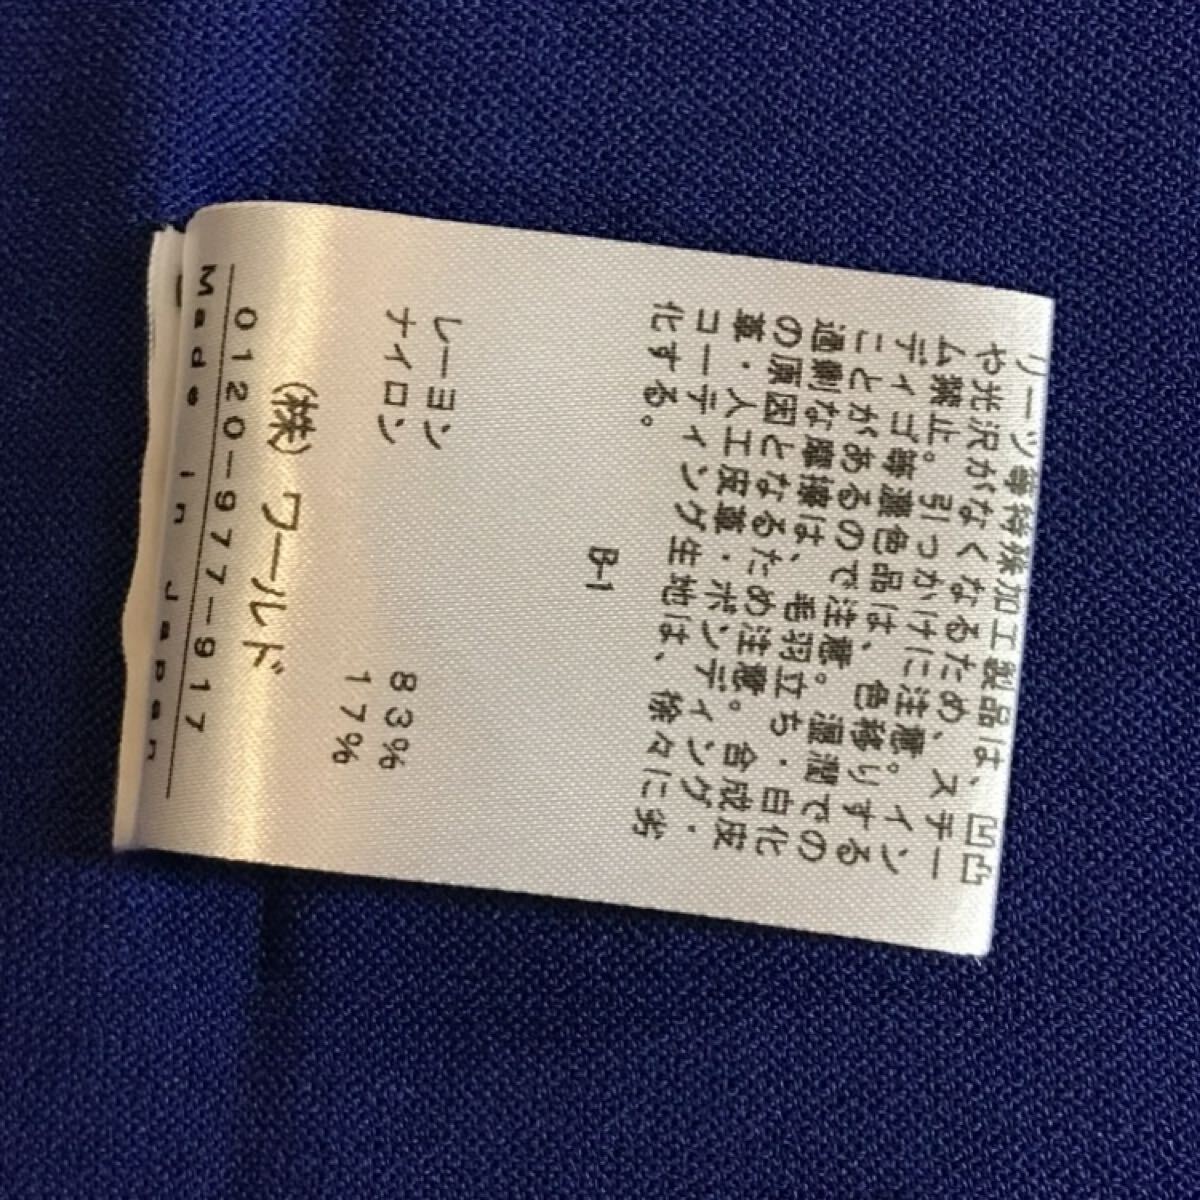 リーツ等特殊加工製品は、凹凸
や光沢がなくなるため、スチー
ム禁止。引っかけに注意。イン
ディゴ等濃色品は、色移りする
ことがあるので注意。湿潤での
過劇な摩擦は、毛羽立ち・白化
の原因となるため注意。合成皮
革・人工皮革・ボンディング・
コーティング生地は、徐々に劣
化する。
B-1
レーヨン 83%
ナイロン 17%
(株)ワールド
0120-977-917
Made in Japan